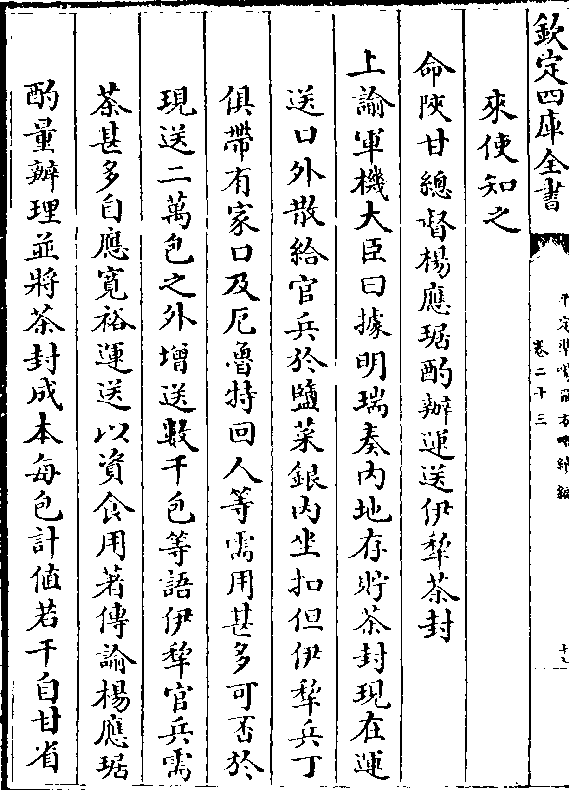 欽定四庫全書
卷二十三
來使知之
命陜甘總督楊應琚酌辦運送伊犂茶封
上諭軍機大臣曰據明瑞奏內地存貯茶封現在運
送口外散給官兵於鹽菜銀內坐扣但伊犂兵丁
俱帶有家口及厄魯特回人等需用甚多可否於
現送二萬包之外增送數千包等語伊犂官兵需
茶甚多自應寬裕運送以資食用著傳諭楊應琚
酌量辦理並將茶封成本每包計值若干自甘省